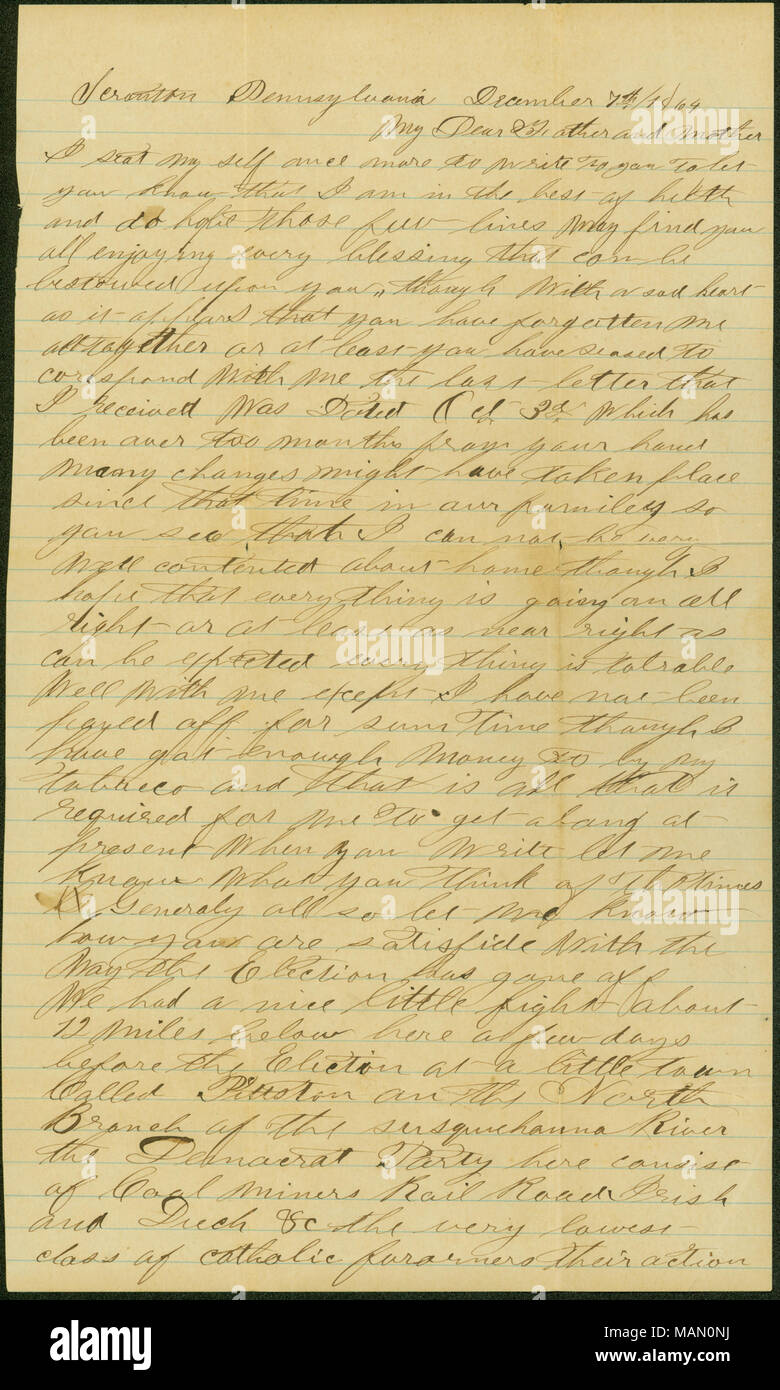 Scranton Pennsylvania December 7th/1864
My Dear Father and Mother
I seat my self once more to write to you to let
you know that I am in the best of helth
and do hope those few lines may find you
all enjoying every blessing that can be
bestowed upon you, though With a sad heart
as it appears that you have forgotten me
alltogether or at least you have seased to
corispond With me the last letter that
I received Was Dated Oct 3d Which has
been over two months from your hand
meany changes might have taken place
since that time in our familey so
you see that I can not be very
Well contented about home though I
hope that every thing is going on all
right or at least as near right as
can be expected every thing is tolrable
Well With me except I have not been
payed off for sum time though I
have got enough money to by my
tobacco and that is all that is
required for me to get along at
present When you Write let me
know What you think of the times
Generaly all so let me know
how you are satisfide With the
Way the Election has gone off
We had a nice little fight about
12 miles below here a few days
before the Election at a little town
Called Pittston on the North
Branch of the susquehanna River
the Democrat Party here consist
of Coal miners Rail Road Irish
and Duch &c the very lowest
class of catholic forarners their action
alamy
Image ID: MAN0NJ
www.alamy.com